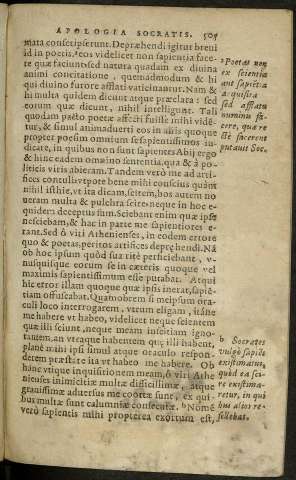 APOLOGIA SOCRATIS. 505
mata conscripserunt. Depræhendi igitur brevi
id in poetis: eos videlicet non sapientia face-
re quæ faciunt sed natura quadam ex divina
animi concitatione, quemadmodum & hi
qui divino furore afflati vaticinantur. Nam &
hi multa quidem dicunt atque præclara: sed
eorum quæ dicunt, nihil intelligunt. Tali
quodam pacto poetæ affecti fuisse mihi vide-
tur, & simul animadverti eos in aliis quoque
propter poesim omnium sapientissimos ju-
dicare, in quibus non sunt sapientes. Abij ergo
& hinc eadem omnino sententia, qua & à po-
liticis viris abieram. Tandem verò me ad arti-
fices contuli: utpote bene mihi conscius quàm
nihil isthic, ut ita dicam, scirem, hos autem no-
veram multa & pulchra scire: neque in hoc e-
quidem deceptus sum. Sciebant enim quæ ipse
nesciebam, & hac in parte me sapientiores e-
rant. Sed ô viri Athenienses, in eodem errore
quo & poetas, peritos artifices deprehendi. Nā
ob hoc ipsum quòd sua ritè perficiebant, u-
nusquisque eorum se in cæteris quoque vel
maximis sapientissimum esse putabat. Atqui
hic error illam quoque quæ ipsis inerat, sapiē-
tiam offuscabat. Quamobrem si meipsum ora-
culi loco interrogarem, utrum eligam, itáne
me habere ut habeo, videlicet neque scientem
quæ illi sciunt, neque meam inscitiam igno-
rantem, an utraque habentem quæ illi habent,
planè mihi ipsi simul atque oraculo respon-
derem præstare ita ut habeo me habere. Ob
hanc utique inquisitionem meam, ô viri Athe-
nienses inimicitiæ multæ difficillimæ, atque
gravissimæ adversus me coortæ sunt, ex qui-
bus multæ sunt calumniæ consecutæ. b Nomē
verò sapientis mihi propterea exortum est,
a Poetas non
ex scientia
aut sapiētia
acquisita
sed afflatu
numinis fa-
cere, quæ re
ctè facerent
putavit Soc.
b Socrates
vulgò sapiēs
existimatus,
quòd ea sci-
re existima-
retur, in qui
bus alios re-
fellebat.